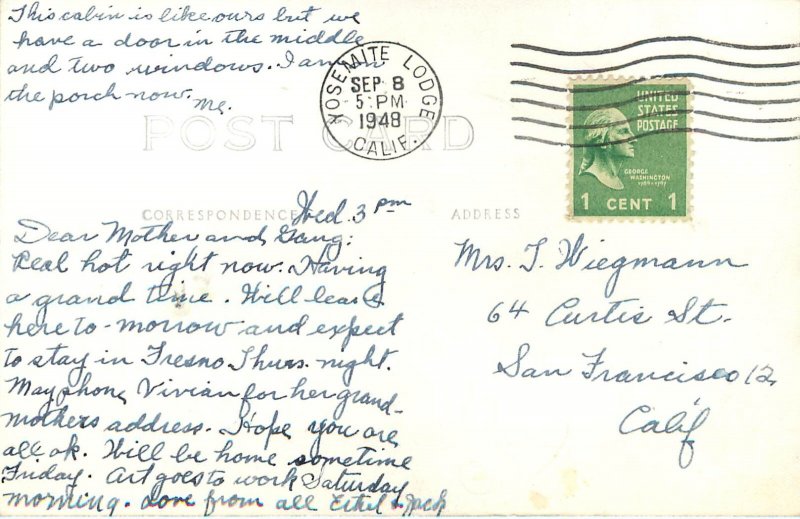 This cabin is like ours but we
have a door in the middle
and two windows. I am on
the porch now.
Me.
YOSEMITE LODGE
SEP 8
5 PM
1948
CALIF.
UNITED
STATES
POSTAGE
GEORGE
WASHINGTON
1789-1797
1 CENT 1
POST CARD
CORRESPONDENCE
ADDRESS
Wed. 3 pm
Dear Mother and Gang:
Real hot right now. Having
a grand time. Will leave
here to-morrow and expect
to stay in Fresno Thurs. night.
May phone Vivian for her grand-
mothers address. Hope you are
all ok. Will be home sometime
Friday. Art goes to work Saturday
morning. Love from all Ethel & Jack
Mrs. T. Wiegmann
64 Curtis St.
San Francisco 12,
Calif